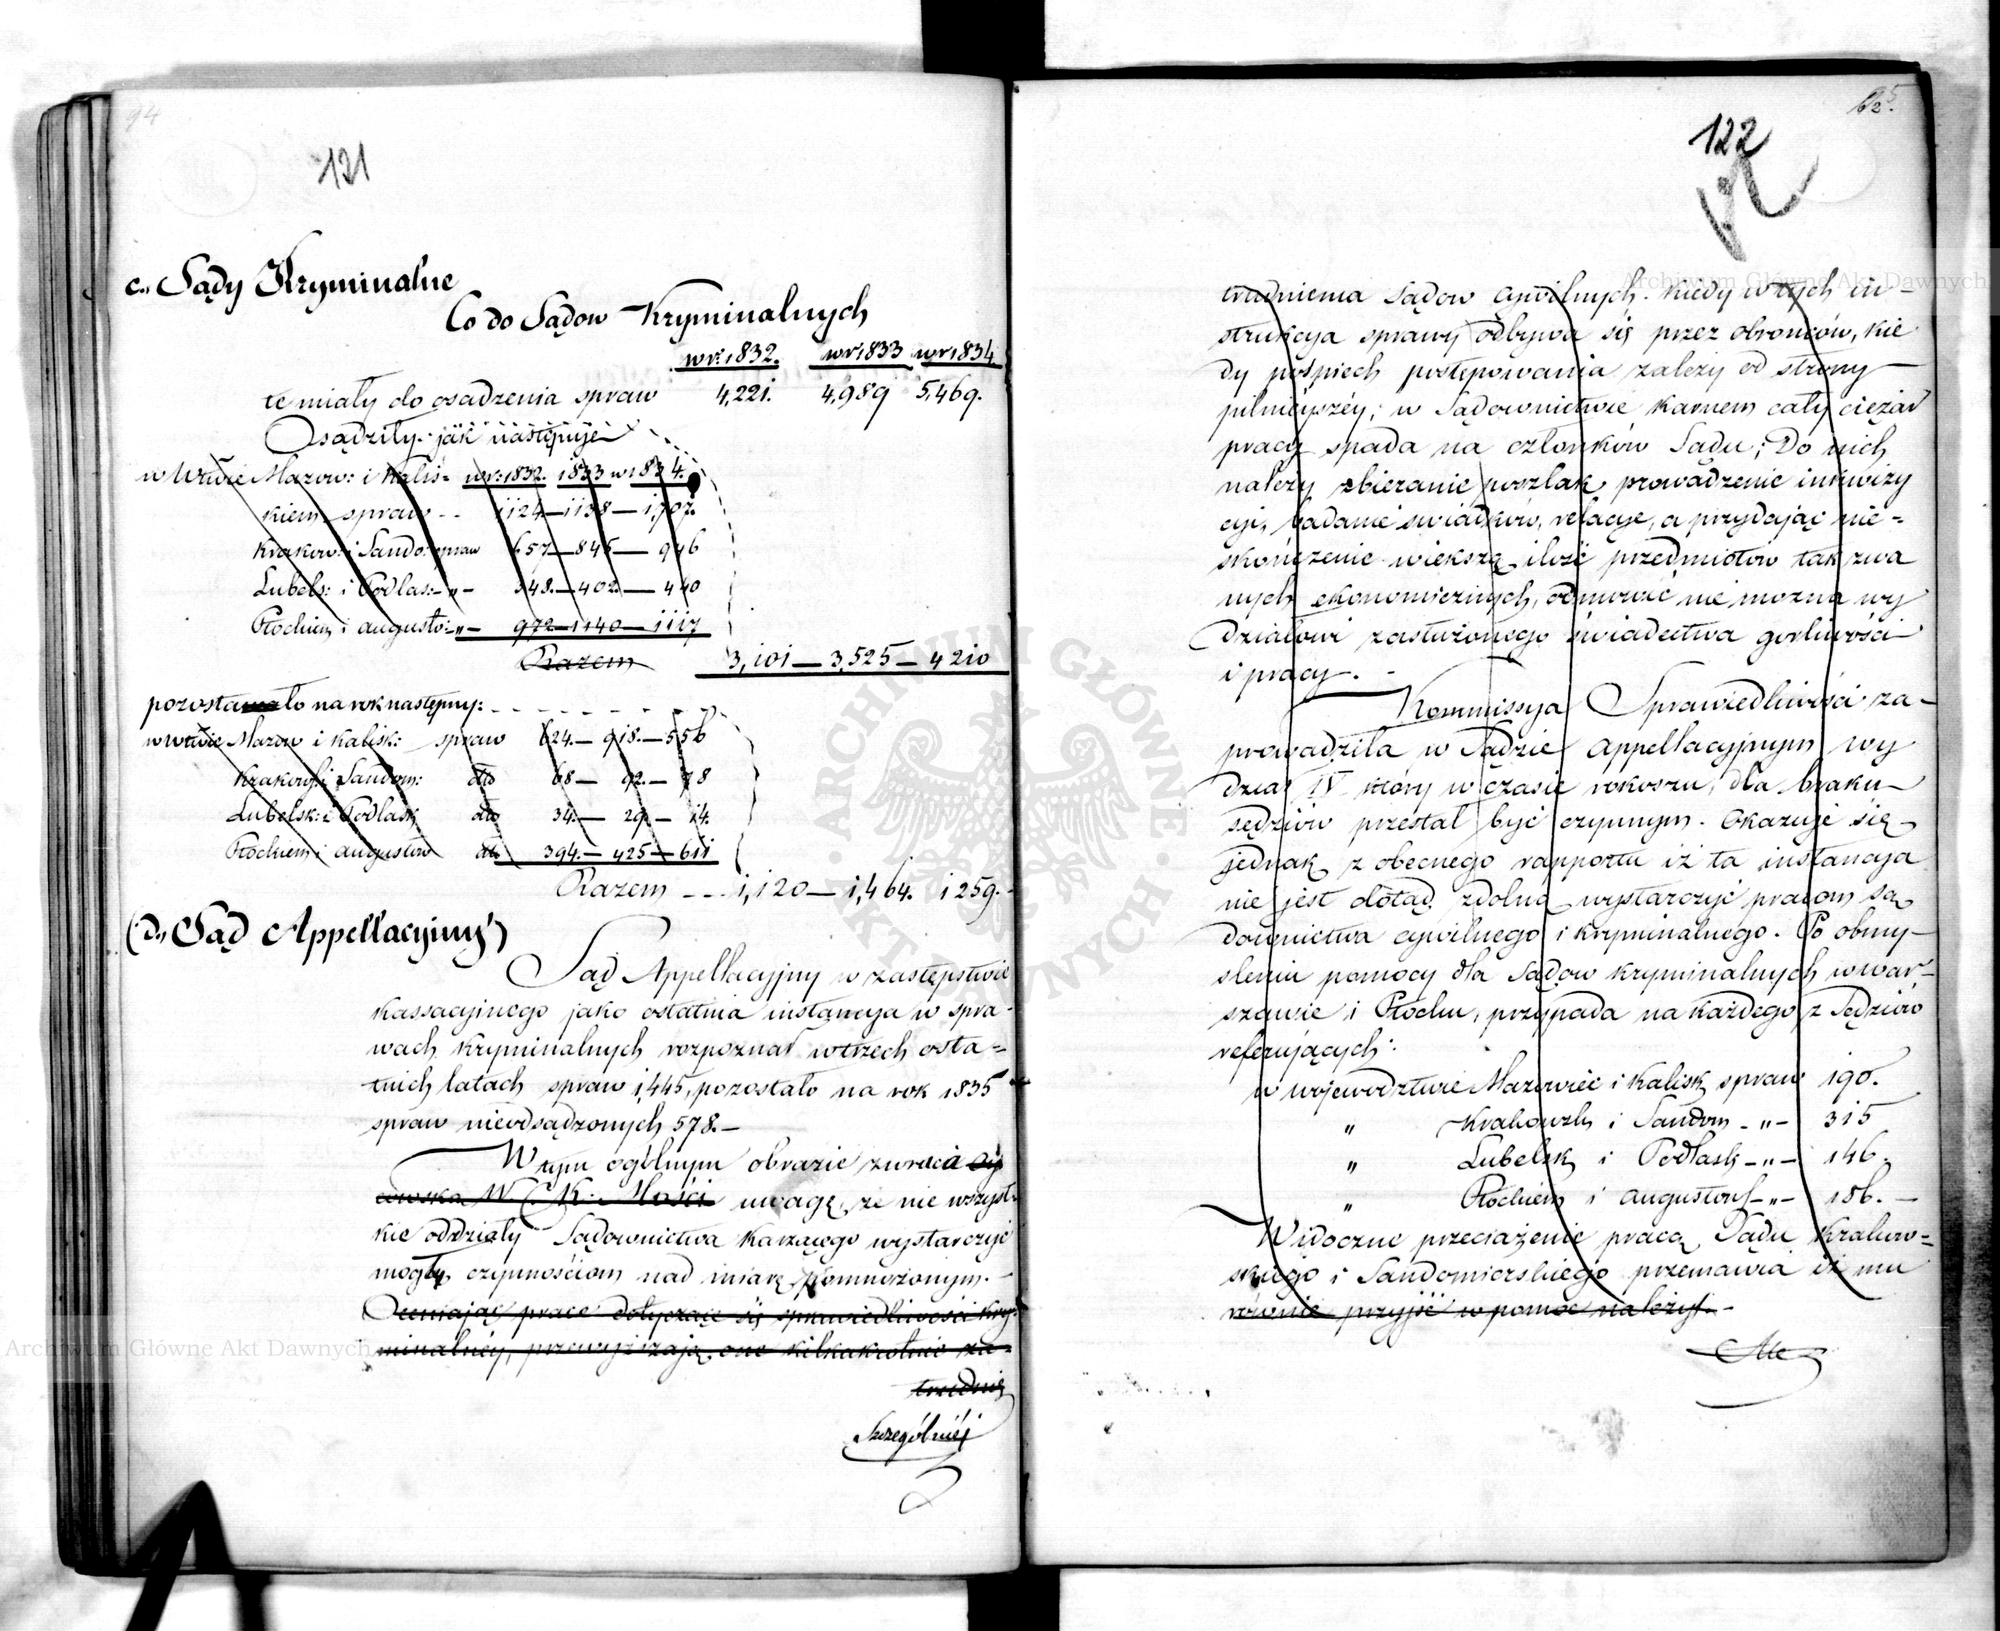 94
121
c., Sądy Kryminalne
Co do Sądow Kryminalnych
w r: 1832. w r 1833 w r 1834
te miały do osadzenia spraw 4,221. 4,989 5,469.
Osądziły jak następuje
w Wdzwie Mazow: i Kalis= w r: 1832. 1833 w 1834.
kiem spraw - - 1124 — 1138 — 1,707.
Krakow: i Sando: spraw 657 — 845 — 946
Lubels: i Podlas: — „ — 348. — 402. — 440
Płockiem i augusto: „ — 972 — 1140 — 1117
Razem 3,101 — 3,525 — 4210
pozostawało na rok następny:
w wdzwie Mazow i Kalisk: spraw 624. — 918. — 556
Krakows: i Sandom: dto 68 — 92. — 78
Lubelsk: i Podlask dto 34. — 29. — 14.
Płockiem i augustow dto 394. — 425 — 611
Razem - - - 1,120 — 1,464. 1259.
(d., Sąd Appellacyjny)
Sąd Appellacyjny w zastępstwie
kassacyjnego jako ostatnia instancya w spra-
wach kryminalnych rozpoznał w trzech osta=
tnich latach spraw 1,445, pozostało na rok 1835
spraw nieodsądzonych 578. —
W tym ogólnym obrazie zwraca Oy
cowska W. C. K. Mości uwagę, że nie wszyst-
kie oddziały Sądownictwa Karzącego wystarczyć
mogły czynnościom nad miarę pomnożonym. —
Oceniając prace dotyczące się sprawiedliwości kry-
minalnéy, przewyższają one kilkakrotnie za-
trudnie
Szczególniéj
122
tradnienia Sądow cywilnych. Kiedy w tych in-
strukcya sprawy odbywa się przez obronców, kie
dy pośpiech postępowania zależy od strony
pilnieyszéy; w Sądownictwie Karnem cały cięzar
pracy spada na członków Sądu; Do nich
należy zbieranie poszlak, prowadzenie inkwizy
cyi, badanie swiadków, relacye, a przydając nie=
skończenie większą ilość przedmiotow tak zwa
nych ekonomicznych, odmówić nie można wy
działowi zasłużonego świadectwa gorliwości
i pracy. -
Kommissya Sprawiedliwości za-
prowadziła w Sądzie Appellacyjnym wy
dział IV. który w czasie rokoszu, dla braku
sędziów przestał być czynnym. Okazuje się
jednak z obecnego rapportu iż ta instancya
nie jest dotąd zdolną wystarczyć pracom są
downictwa cywilnego i kryminalnego. Po obmy-
sleniu pomocy dla Sądow kryminalnych w War-
szawie i Płocku, przypada na każdego z Sędziów
referujących:
w województwie Mazowiec i Kalisk spraw 190.
„ Krakowsk i Sandom - „ - 315
„ Lubelsk i Podlask - „ - 146.
„ Płockiém i augustows - „ - 186. —
Widoczne przeciążenie pracą Sądu Krakow=
skiego i Sandomierskiego przemawia iż mu
rownie przyjść w pomoc należy. -
Ale